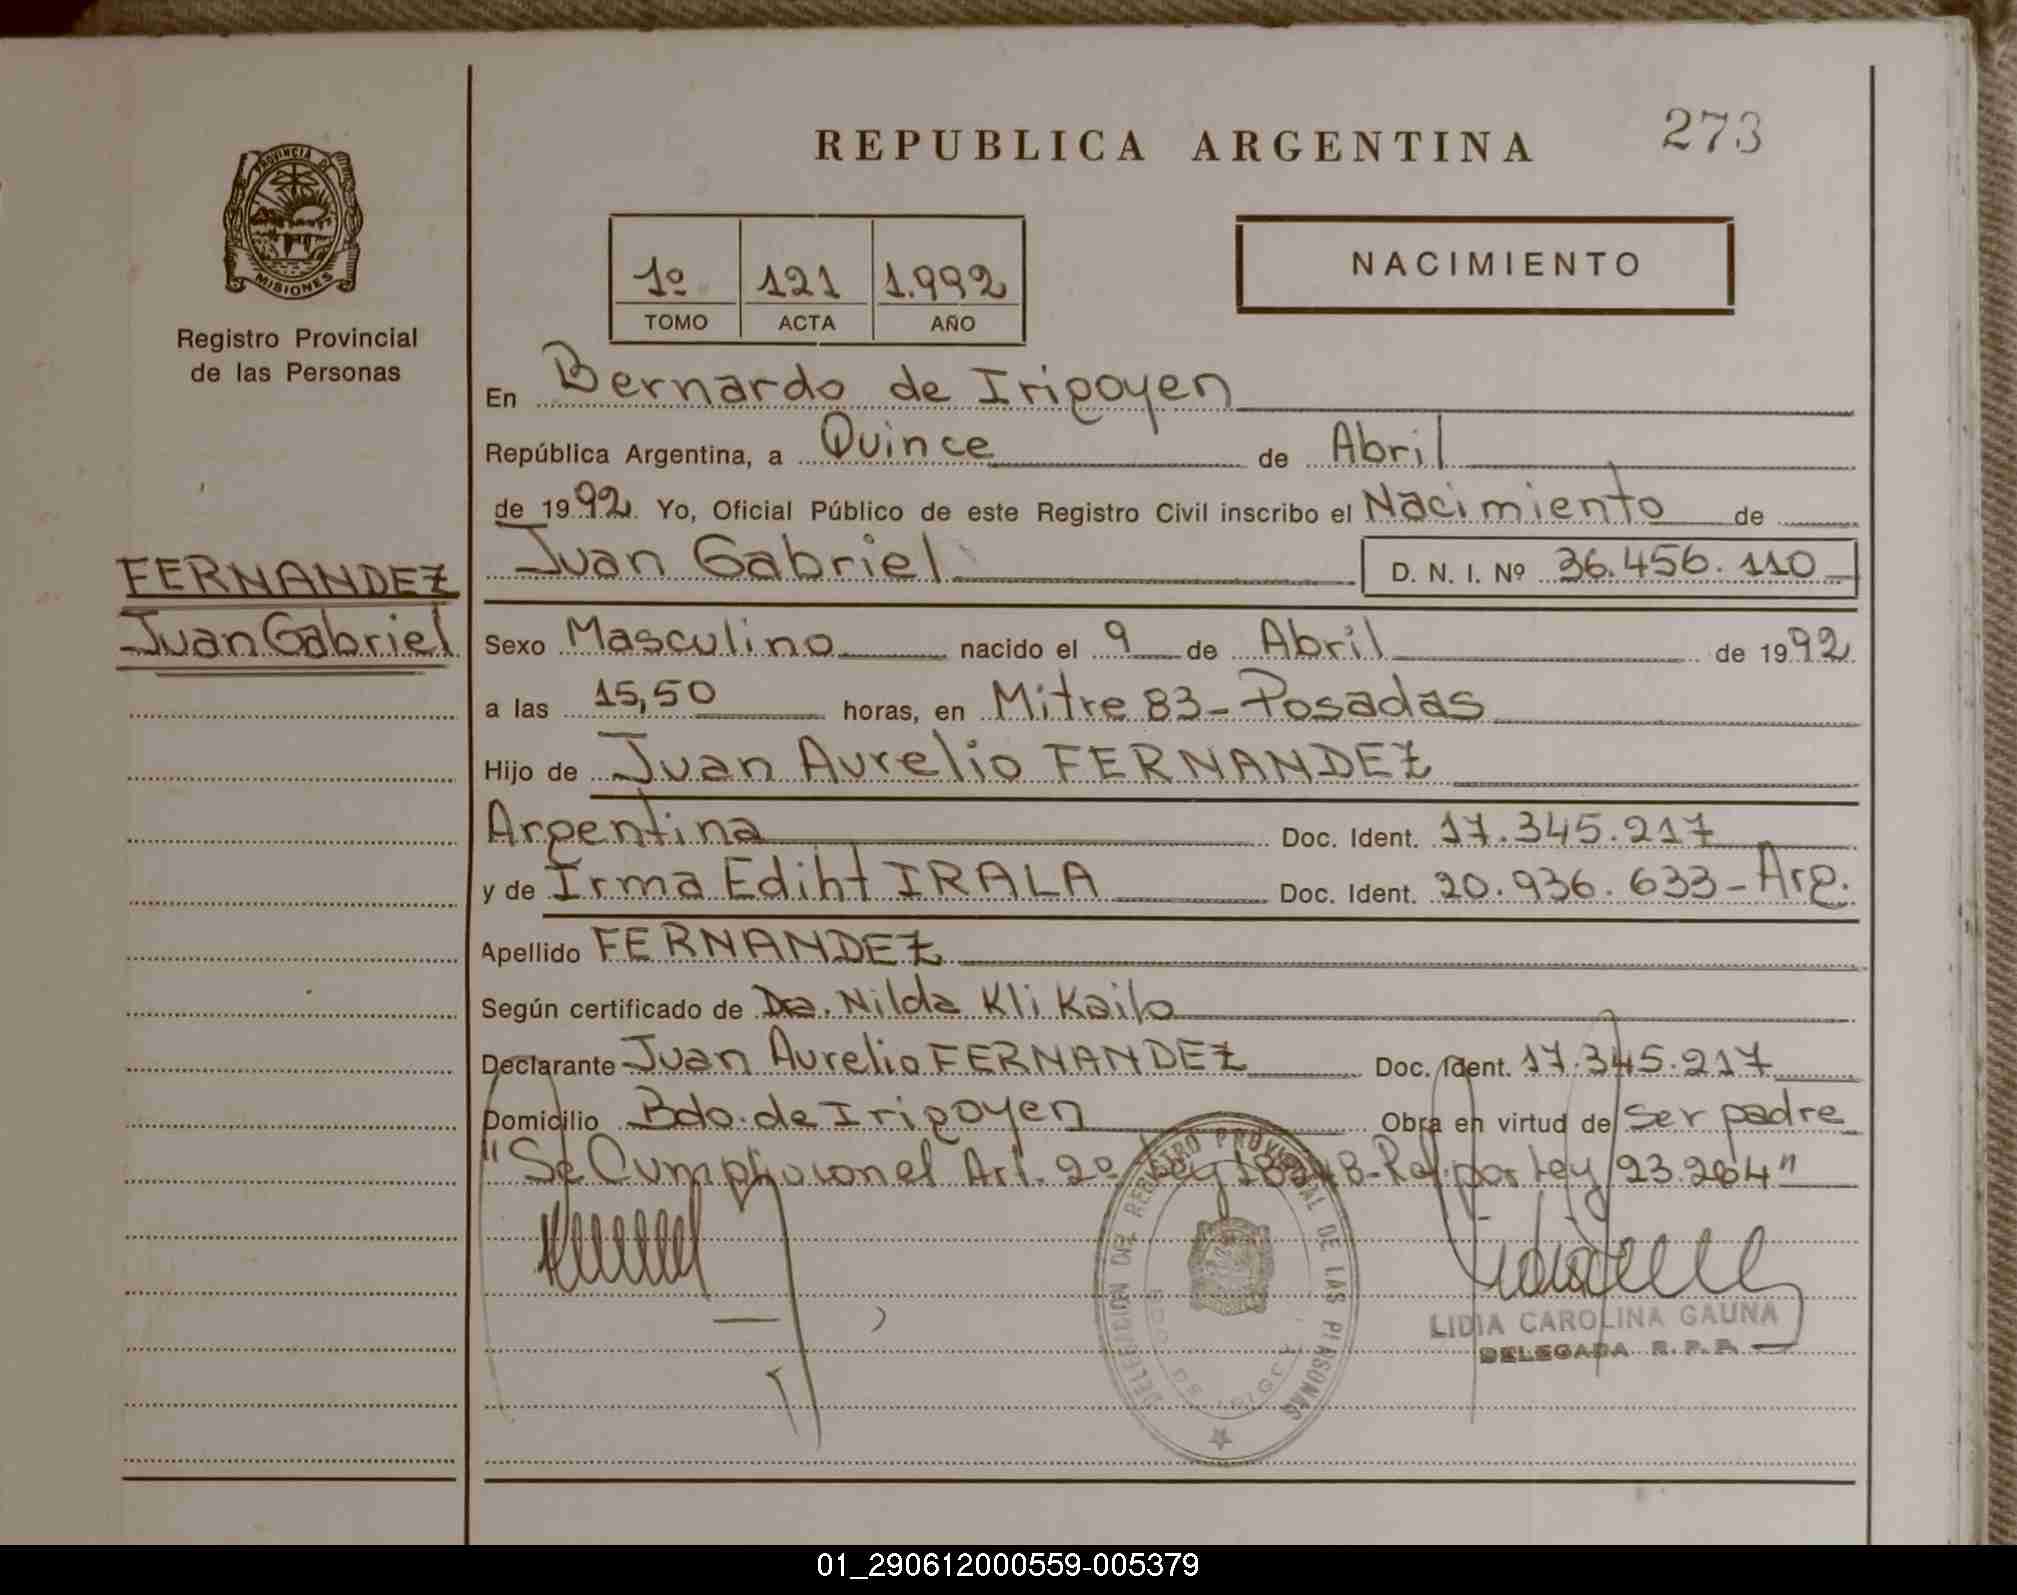 REPUBLICA ARGENTINA
273
PROVINCIA DE MISIONES
Registro Provincial
de las Personas
1º 121 1.992
TOMO ACTA AÑO
NACIMIENTO
En Bernardo de Irigoyen
República Argentina, a Quince de Abril
de 1992. Yo, Oficial Público de este Registro Civil inscribo el Nacimiento de
Juan Gabriel D. N. I. Nº 36.456.110
FERNANDEZ
Juan Gabriel
Sexo Masculino nacido el 9 de Abril de 1992
a las 15,50 horas, en Mitre 83-Posadas
Hijo de Juan Aurelio FERNANDEZ
Argentina Doc. Ident. 17.345.217
y de Irma Ediht IRALA Doc. Ident. 20.936.633-Arg.
Apellido FERNANDEZ
Según certificado de Da. Nilda Kli Kailo
Declarante Juan Aurelio FERNANDEZ Doc. Ident. 17.345.217
Domicilio Bdo. de Irigoyen Obra en virtud de ser padre
"Se Cumplio con el Art. 2º Ley 18248-Ref. por Ley 23.264"
DELEGACION DE REGISTRO PROVINCIAL DE LAS PERSONAS
LIDIA CAROLINA GAUNA
DELEGADA R. P. P.
01_290612000559-005379